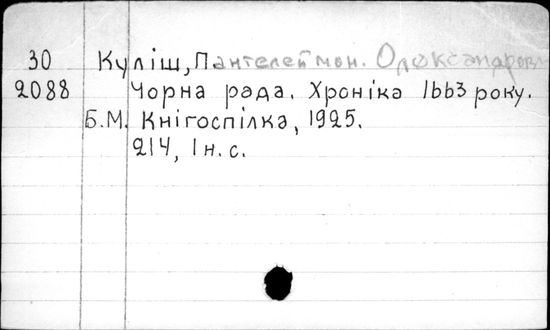 30 Куліш, Пантелеймон. Олександров.
2088 Чорна рада. Хроніка 1663 року.
Б.М. Кнігоспілка, 1925.
214, 1 н. с.